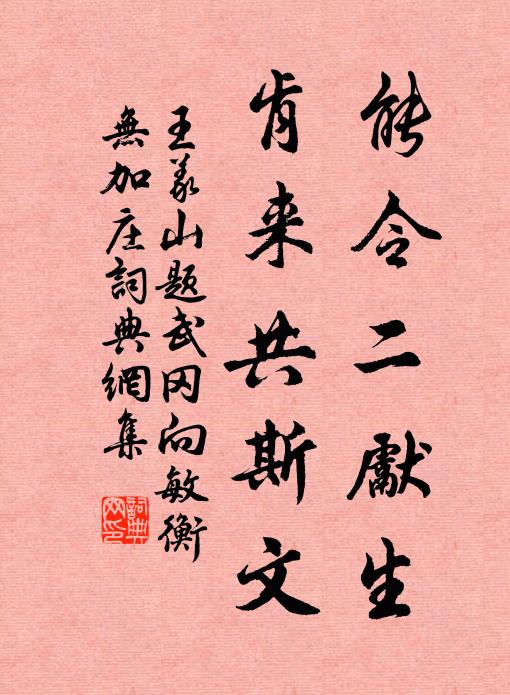 能令二獻生
肯来共斯文
王義山題武冈向敏衡
無加庄詞典網集
詞典网印